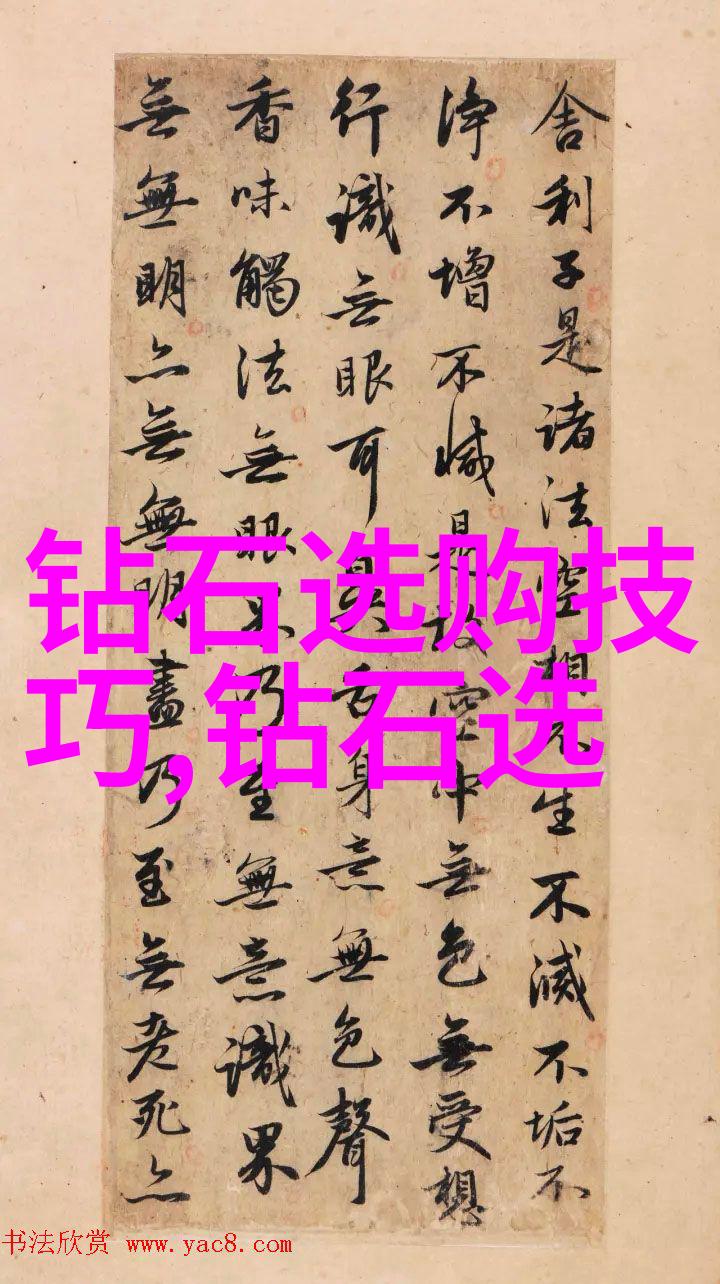 舍利子是諸法空相不生不滅不垢不
淨不增不減是故空中無色無受想
行識无眼耳鼻舌身意無色聲
香味觸法無眼界乃至無意識界
無無明亦無無明盡乃至無老死亦
钻石选购技
巧,钻石选
书法欣赏 www.yac8.com